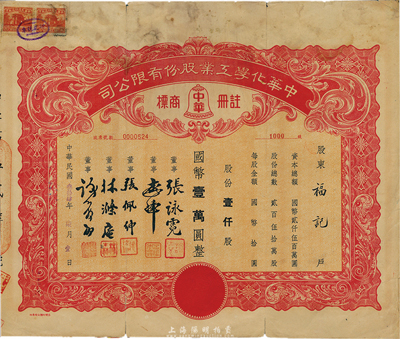 中華化學工業股份有限公司
註冊 中華 商標
0000624
1000
股東 福記 戶
資本總額 國幣貳仟伍百萬圓
股份總數 貳百伍拾萬股
每股金額 國幣拾圓
股份 壹仟 股
國幣 壹萬 圓整
董事 張詠霓
董事
董事 張佩仲
董事 林滌庵
董事
中華民國 年 月 日
上海阳明拍卖